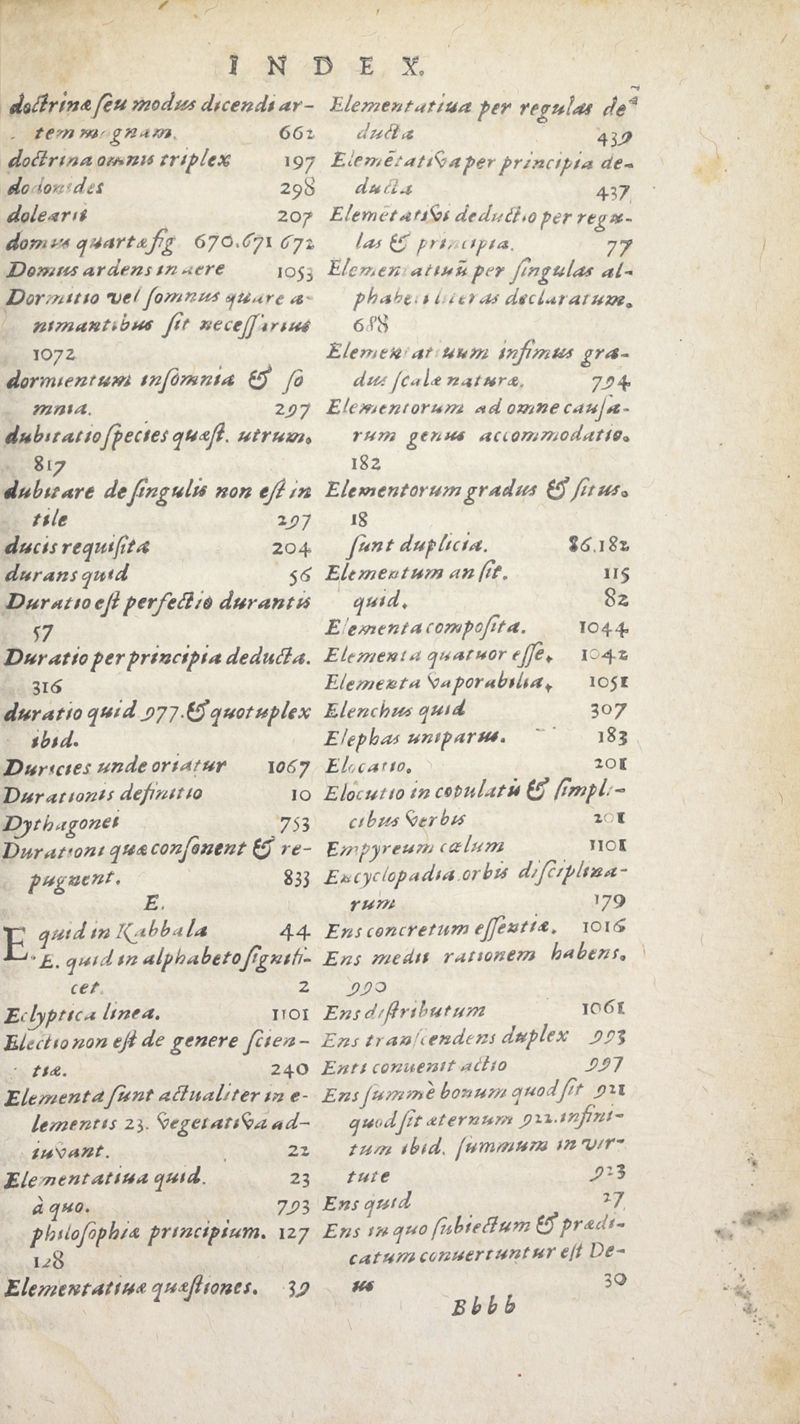 INDEX.
doctrinæ seu modus dicendi ar-
tem magnam. 662
doctrina omnis triplex 197
298
dolearii 207
domus quartæ fig 670.671 672
Domus ardens in aere 1053
Dormitio vel somnus quare a-
nimantibus sit necessarius
1072
dormientum insomnia & so
mnia. 297
dubitatio species quæst. utrum.
817
dubitare de singulis non est in
tile 297
ducis requisita 204
durans quid 56
Duratio est perfectio durantis
57
Duratio per principia deducta.
316
duratio quid 977. & quotuplex
ibid.
Duricies unde oriatur 1067
Durationis definitio 10
Dythagonei 753
Durationi quæ consonent & re-
pugnent. 833
E.
E quid in Kabbala 44
E. quid in alphabeto signifi-
cet 2
Eclyptica linea. 1101
Electio non est de genere scien-
tiæ. 240
Elementa sunt actualiter in e-
lementis 23. vegetativa ad-
iuvant. 22
Elementatiua quid. 23
à quo. 793
philosophiæ principium. 127
128
Elementatiuæ quæstiones. 39
Elementatiua per regulas de
ducta 439
Elemētativa per principia de-
ducta 437
Elemētativi deductio per regu-
las & principia. 77
Elementatiuū per singulas al-
phabeti literas declaratum.
688
Elementatiuum infimus gra-
dus scalæ naturæ. 794
Elementorum ad omne causa-
rum genus accommodatio.
182
Elementorum gradus & situs.
18
sunt duplicia. 86.182
Elementum an sit. 115
quid. 82
Elementa composita. 1044
Elementa quatuor esse. 1042
Elementa vaporabilia. 1051
Elenchus quid 307
Elephas uniparus. 183
Elocatio. 201
Elocutio in copulatis & simpli-
cibus verbis 201
Empyreum cælum 1101
Encyclopædia orbis disciplina-
rum 179
Ens concretum essentiæ. 1016
Ens medii rationem habens.
990
Ens distributum 1061
Ens transcendens duplex 993
Enti conuenit actio 997
Ens summè bonum quod sit 921
quod sit æternum 922. infini-
tum ibid. summum in vir-
tute 923
Ens quid 27
Ens in quo subiectum & prædi-
catum conuertuntur est De-
us 30
Bbbb